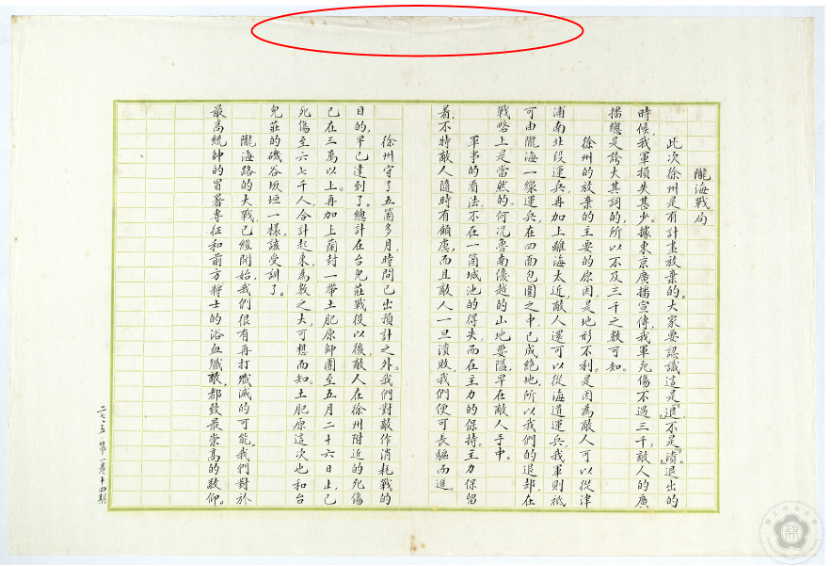 隴海戰局
此次徐州是有計畫放棄的。大家要認識這是「退」不是「潰」。退出的
時候我軍損失甚少。據東京廣播宣傳我軍死傷不過三千，敵人的廣
播總是誇大其詞的，所以不及三千之數可知。
徐州的放棄的主要的原因，是地形不利。是因為敵人可以從津
浦南北段運兵，再加上離海太近，敵人還可以從海道運兵，我軍則祇
可由隴海一線運兵，在四面包圍之中，已成絶地，所以我們的退却，在
戰略上是當然的。何況魯南優越的山地要隘，早在敵人手中。
軍事的看法，不在一箇城池的得失，而在主力的保持。主力保留
着，不特敵人隨時有顧慮，而且敵人一旦潰敗，我們便可長驅而進。
徐州守了五箇多月，時間已出預計之外。我們對敵作消耗戰的
目的，早已達到了。總計在台兒莊戰役以後，敵人在徐州附近的死傷
已在三萬以上。再加上蘭封一帶土肥原師團至五月二十六日止，已
死傷至六七千人，合計起來，為數之大，可想而知。土肥原這次也和台
兒莊的磯谷坂垣一樣，該受訓了。
隴海路的大戰，已經開始，我們很有再打殲滅的可能。我們對於
最高統帥的冒暑專征和前方將士的浴血殲敵，都致最崇高的敬仰。
二七、五、第一卷十四期